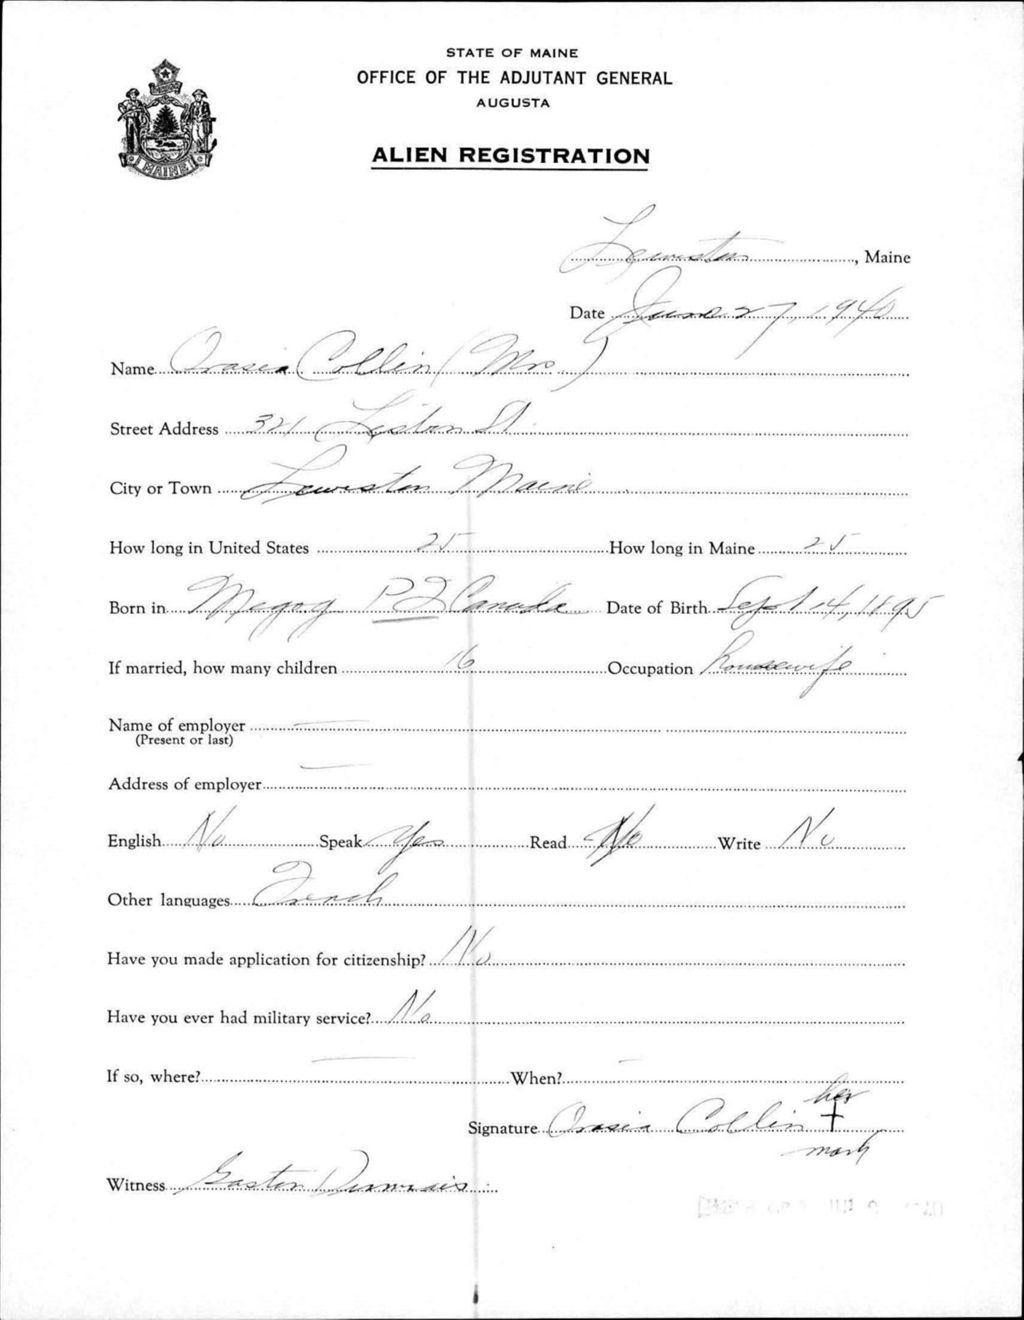 STATE OF MAINE
OFFICE OF THE ADJUTANT GENERAL
AUGUSTA
ALIEN REGISTRATION
MAINE
Lewiston, Maine
Date June 27, 1940
Name Orasia Collin (Mrs)
Street Address 321 Lisbon St
City or Town Lewiston Maine
How long in United States 25 How long in Maine 25
Born in Magog P Q Canada Date of Birth Sept 14, 1895
If married, how many children 16 Occupation housewife
Name of employer —
(Present or last)
Address of employer —
English No Speak Yes Read No Write No
Other languages French
Have you made application for citizenship? No
Have you ever had military service? No
If so, where? — When? —
her
Signature Orasia Collin +
mark
Witness Gaston Dumais